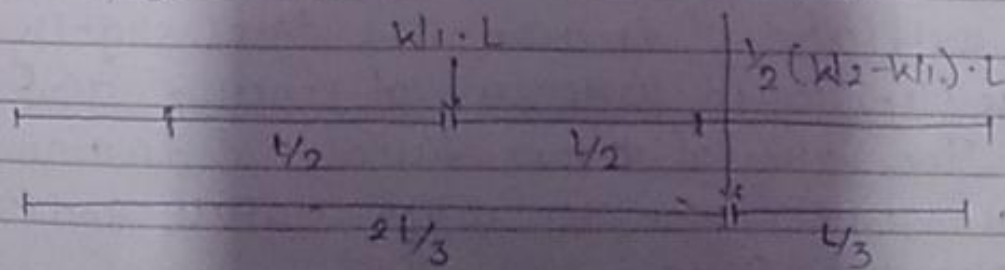 W1 . L
1/2 (W2 - W1) . L
L/2 L/2
2L/3 L/3